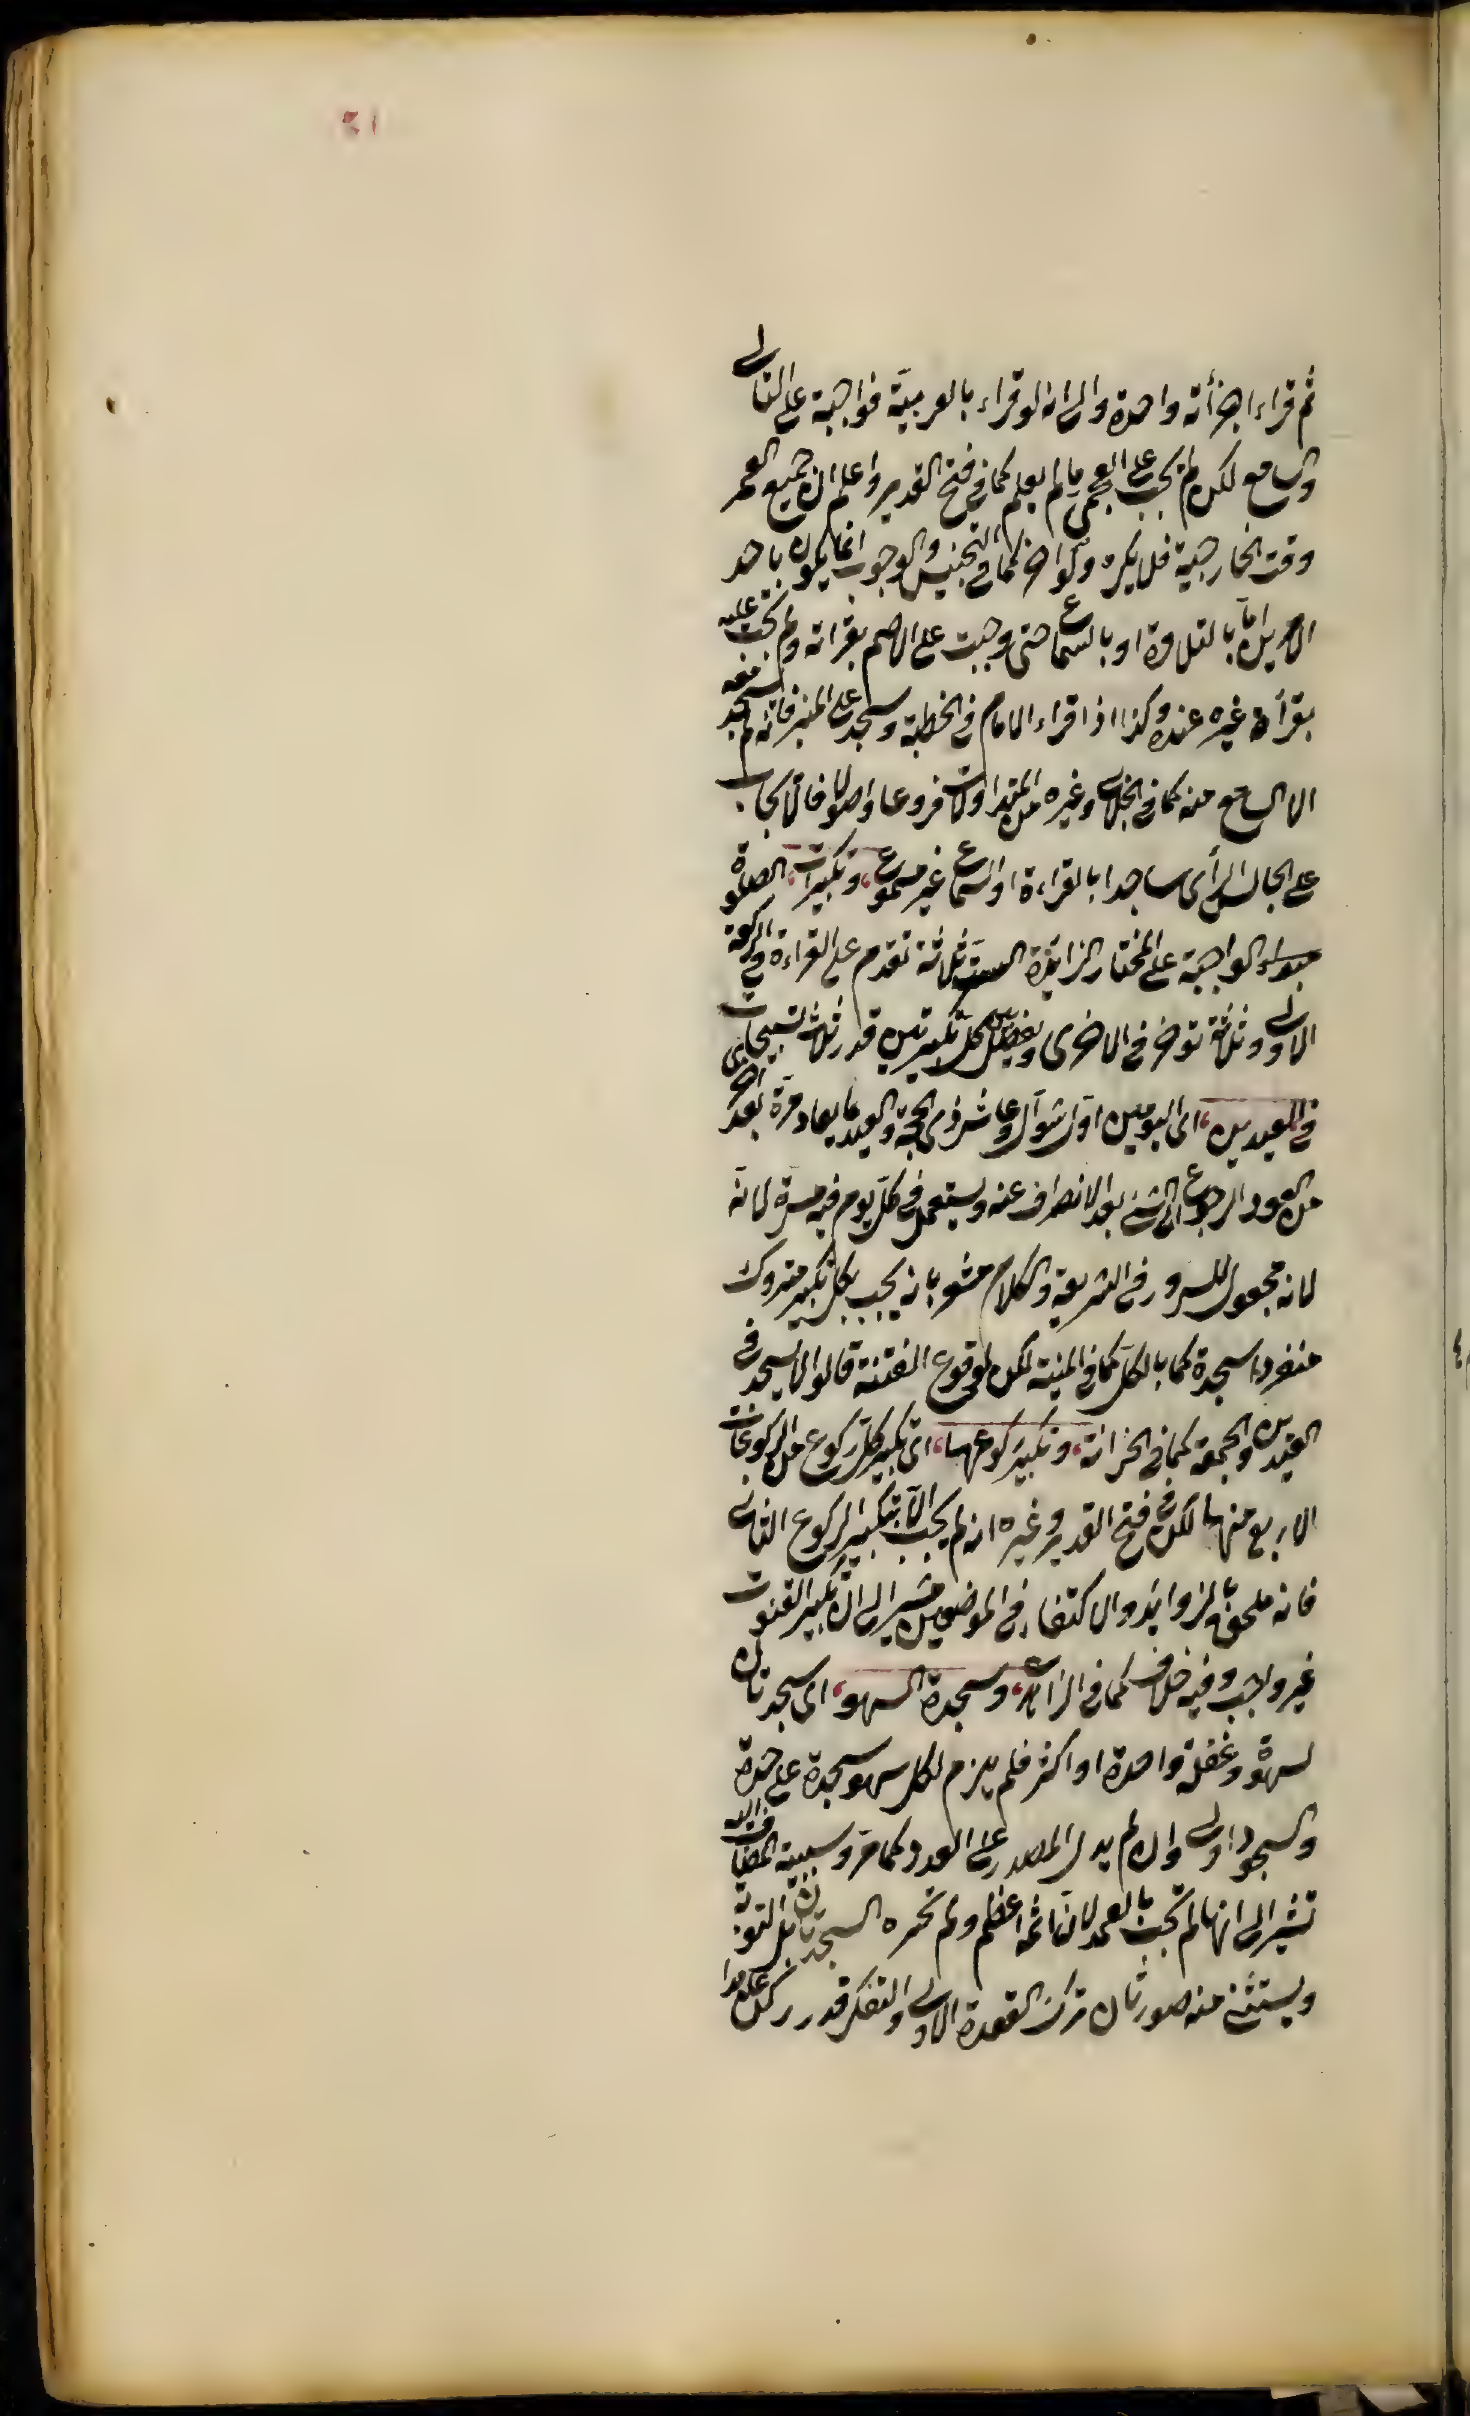 ثم قراء اجزأته واحدة والى انه لو قراء بالعربية فواجبة على التالى
والسامع لكن لم يجب على العجمى ما لم يعلم كما فى فتح القدير واعلم ان جميع العمر
وقت الخارجية فلا يكره ولو اخر كما فى التجنيس والوجوب انما يكون باحد
الامرين اما بالتلاوة او بالسماع حتى وجبت على الاصم بقراته ولم تجب عليه
بقرأة غيره عنده وكذا اذا قراء الامام فى الخطبة وسجد على المنبر فانه لم يسجد معه
الا السامع منه كما فى الجلابى وغيره من المتداولات فروعا واصولا فما لا يجاب
على الجالس الرأى ساجدا بالقراءة او السماع غير مسموع، وتكبيرات، الصلوة
الواجبة على المختار الزائدة الست ثلاثة تقدم على القراءة فى الركعة
الاولى وثلاثة تؤخر فى الاخرى ويفصل بين كل تكبيرتين قدر ثلاث تسبيحات
فى العيدين، اى اليومين اول شوال وعاشر ذى الحجة والعيد ما يعاد مرة بعد اخرى
من العود الرجوع الى الشئ بعد الانصراف عنه ويستعمل فى كل يوم فيه مسرة لانه
لانه مجعول للسرور فى الشريعة والكلام مشعر بانه يجب بكل تكبير متروك
منفردا سجدة كما بالكل كما فى المنية لكن لوقوع الفتنة قالوا لا يسجد فى
العيدين والجمعة كما فى الخزانة، وتكبير ركوعهما، اى تكبير كل ركوع من الركوعات
الاربع منهما لكن فى فتح القدير وغيره انه لم يجب الا بتكبير الركوع الثانى
فانه ملحق بالزوائد والاكتفاء فى الموضعين مشير الى ان تكبير القنوت
غير واجب وفيه خلاف كما فى الزاهدى، وسجدة السهو، اى سجدتان
لسهوة وغفلة واحدة او اكثر فلم يلزم لكل سهو سجدة على حدة
والسجود اولى وان لم يدل المصدر على العدد كما مر وسببية المضاف اليه
تشير الى انها لم تجب بالعمد لان اثمه اعظم ولم تجبره السجدتان بل التوبة
ويستثنى منه صورتان ترك القعدة الاولى والتفكر قدر ركن عامدا